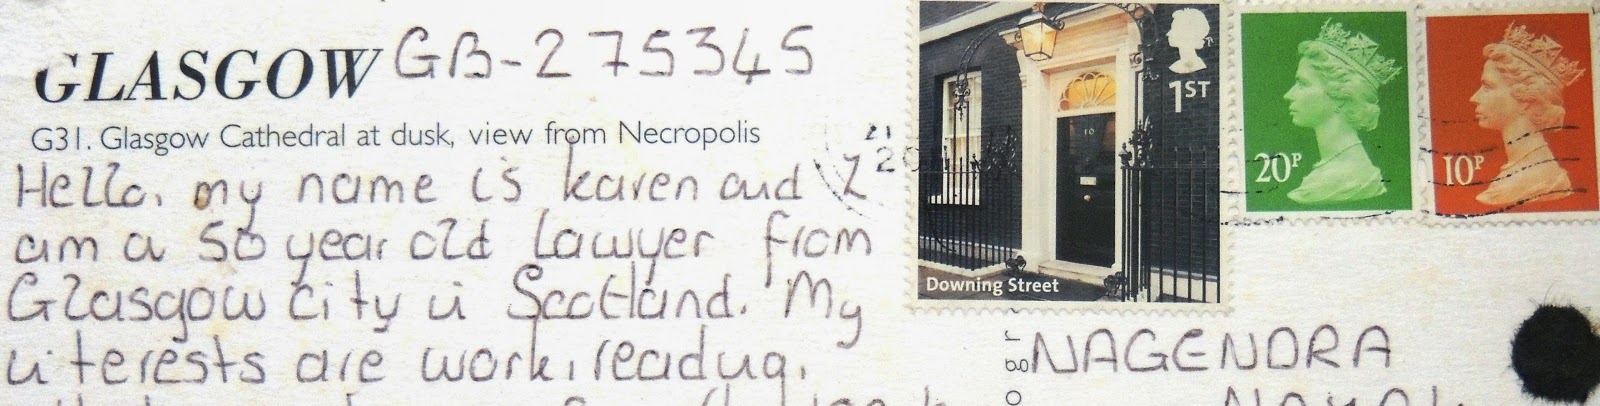 GLASGOW GB-275345
G31. Glasgow Cathedral at dusk, view from Necropolis
Hello, my name is karen and I
am a 50 year old lawyer from
Glasgow city in Scotland. My
interests are work, reading,
1ST
Downing Street
10
20P
10P
21
NAGENDRA